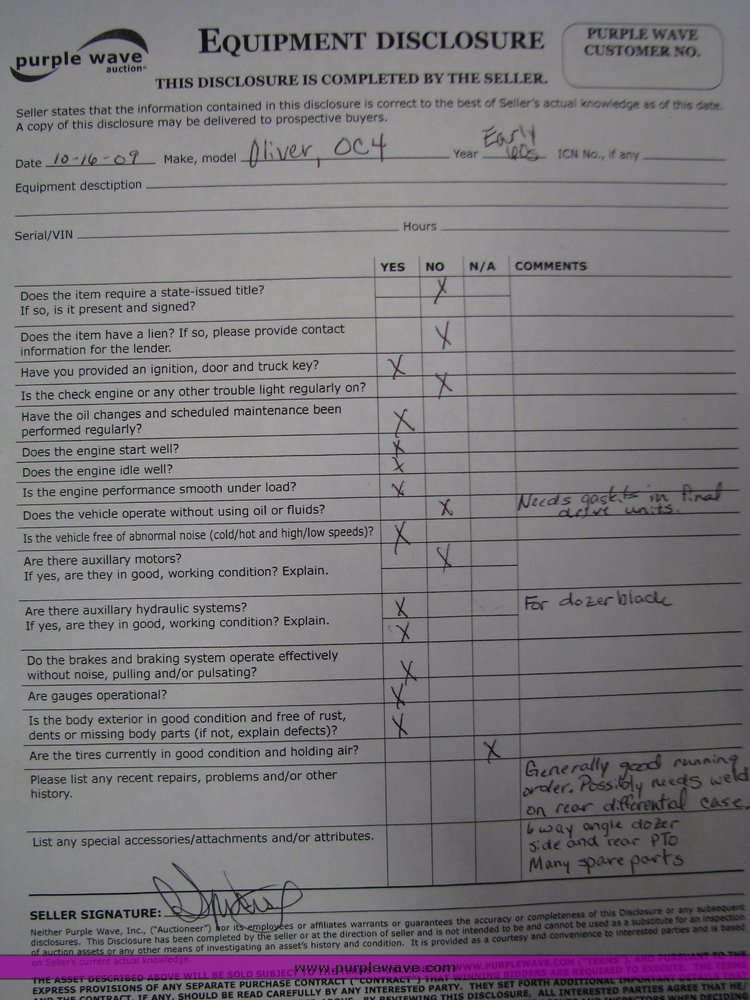 purple wave
auction
EQUIPMENT DISCLOSURE
PURPLE WAVE
CUSTOMER NO.
THIS DISCLOSURE IS COMPLETED BY THE SELLER.
Seller states that the information contained in this disclosure is correct to the best of Seller's actual knowledge as of this date.
A copy of this disclosure may be delivered to prospective buyers.
Date 10-16-09 Make, model Oliver, OC4 Year Early 60s ICN No., if any
Equipment desctiption
Serial/VIN Hours
YES NO N/A COMMENTS
Does the item require a state-issued title? X
If so, is it present and signed?
Does the item have a lien? If so, please provide contact
information for the lender. X
Have you provided an ignition, door and truck key? X
Is the check engine or any other trouble light regularly on? X
Have the oil changes and scheduled maintenance been
performed regularly? X
Does the engine start well? X
Does the engine idle well? X
Is the engine performance smooth under load? X
Does the vehicle operate without using oil or fluids? X Needs gaskits in final
drive units.
Is the vehicle free of abnormal noise (cold/hot and high/low speeds)? X
Are there auxillary motors? X
If yes, are they in good, working condition? Explain.
Are there auxillary hydraulic systems? X For dozer blade
If yes, are they in good, working condition? Explain. X
Do the brakes and braking system operate effectively
without noise, pulling and/or pulsating? X
Are gauges operational? X
Is the body exterior in good condition and free of rust,
dents or missing body parts (if not, explain defects)? X
Are the tires currently in good condition and holding air? X
Please list any recent repairs, problems and/or other
history.
Generally good running
order. Possibly needs weld
on rear differential case.
List any special accessories/attachments and/or attributes.
6 way angle dozer
side and rear PTO
Many spare parts
SELLER SIGNATURE:
Neither Purple Wave, Inc., ("Auctioneer") nor its employees or affiliates warrants or guarantees the accuracy or completeness of this Disclosure or any subsequent
disclosures. This Disclosure has been completed by the seller or at the direction of seller and is not intended to be and cannot be used as a substitute for an inspection
of auction assets or any other means of investigating an asset's history and condition. It is provided as a courtesy and convenience to interested parties and is based
on Seller's current actual knowledge.
www.purplewave.com
THE ASSET DESCRIBED ABOVE WILL BE SOLD SUBJECT
WWW.PURPLEWAVE.COM ("TERMS"), AND PURSUANT TO THE
EXPRESS PROVISIONS OF ANY SEPARATE PURCHASE CONTRACT ("CONTRACT") THAT WINNING BIDDERS ARE REQUIRED TO EXECUTE. THE TERMS
AND THE CONTRACT, IF ANY, SHOULD BE READ CAREFULLY BY ANY INTERESTED PARTY. THEY SET FORTH ADDITIONAL IMPORTANT
BY REVIEWING THIS DISCLOSURE, ALL INTERESTED PARTIES AGREE THAT